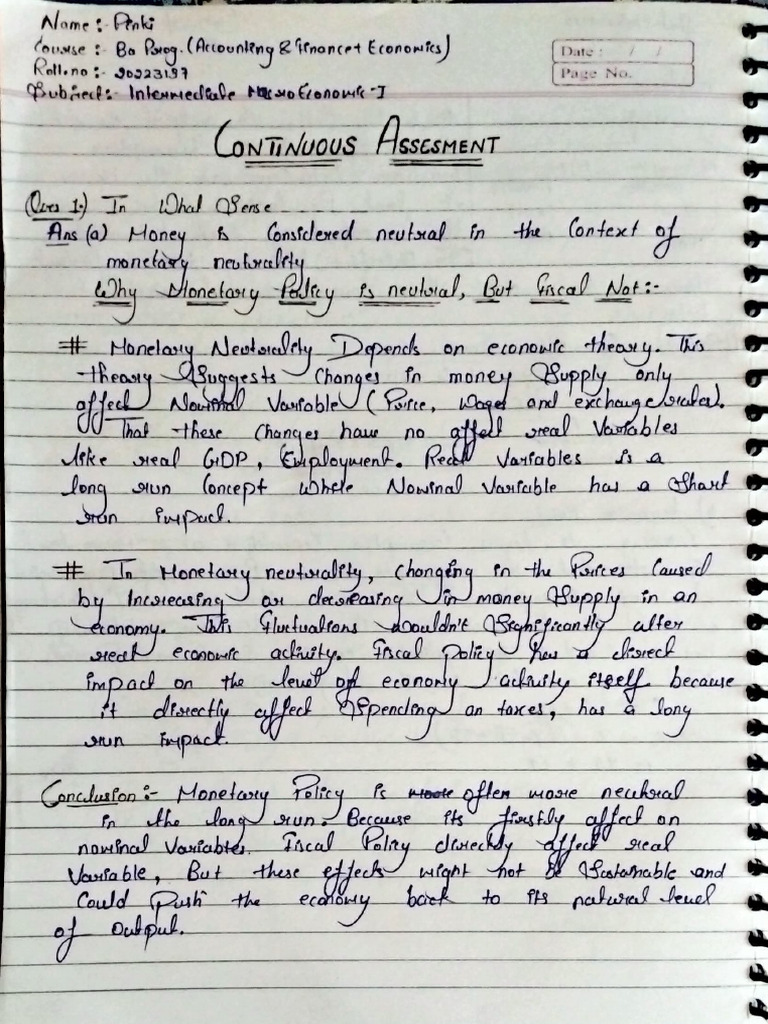 Name :- Pinki
Course :- Ba Prog. (Accounting & Finance + Economics)
Roll.no :- 20223197
Subject:- Intermediate Macro Economic-I
Date : / /
Page No.
CONTINUOUS ASSESMENT
(Ques 1.) In What Sense
Ans (a) Money is Considered neutral in the Context of
monetary neutrality
Why Monetary Policy is neutral, But Fiscal Not:-
# Monetary Neutrality Depends on economic theory. This
theory Suggests Changes in money Supply only
affect Nominal Variable (Price, Wages and exchange rates).
That these Changes have no affect real Variables
like real GDP, Employment. Real Variables is a
long run Concept Where Nominal Variable has a Short
run impact.
# In Monetary neutrality, Changing in the Prices Caused
by Increasing or decreasing in money Supply in an
economy. This Fluctuations Wouldn't Significantly alter
real economic activity. Fiscal policy has a direct
impact on the level of economy activity itself because
it directly affect Spending on taxes, has a long
run impact.
Conclusion:- Monetary Policy is often more neutral
in the long run. Because its firstly affect on
nominal Variables. Fiscal Policy directly affect real
Variable, But these effects might not be Sustainable and
Could Push the economy back to its natural level
of output.